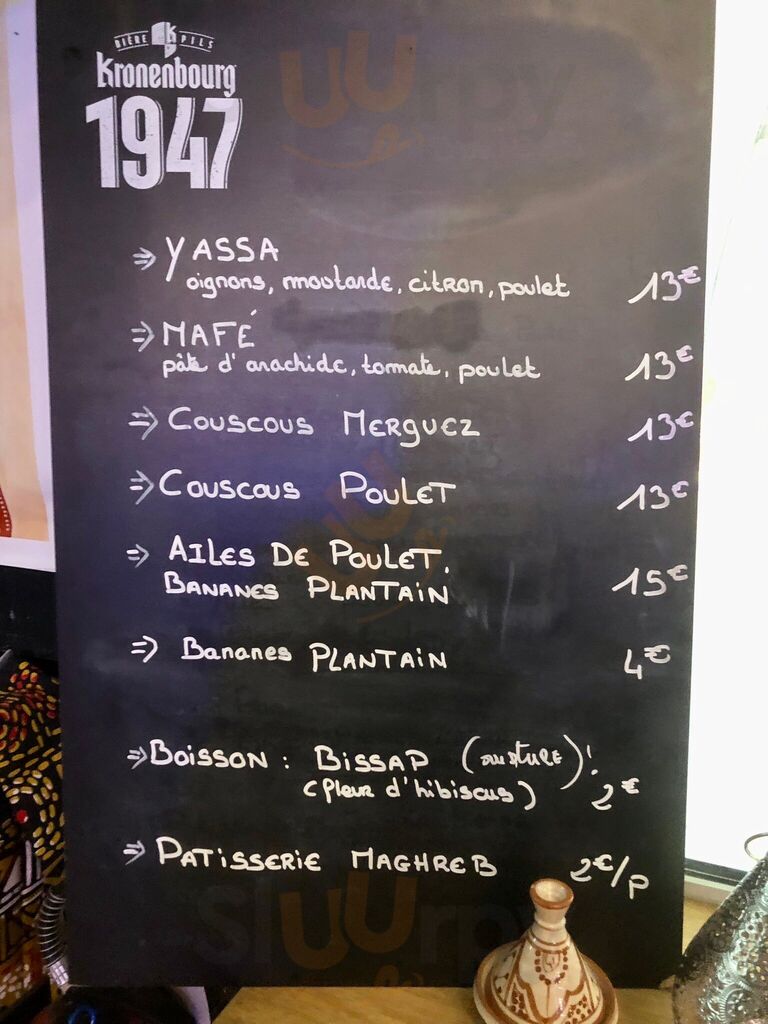 BIÈRE PILS
Kronenbourg
1947
⇒ YASSA
oignons, moutarde, citron, poulet 13€
⇒ MAFÉ
pâte d'arachide, tomate, poulet 13€
⇒ COUSCOUS MERGUEZ 13€
⇒ COUSCOUS POULET 13€
⇒ AILES DE POULET.
BANANES PLANTAIN 15€
⇒ Bananes PLANTAIN 4€
⇒ BOISSON : BISSAP
(fleur d'hibiscus) 2€
⇒ PATISSERIE MAGHREB 2€/P
sluurpy